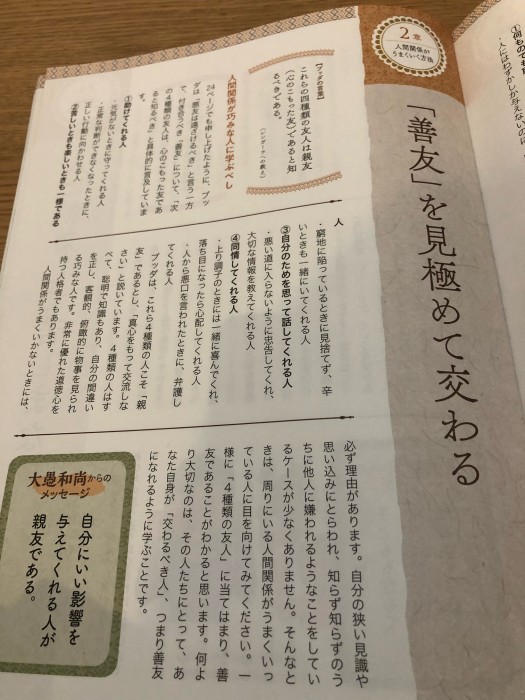 ①何ものでも
・人にはわずかしか与えないのに
2章
人間関係が
うまくいく方法
「善友」を見極めて交わる
【ブッダの言葉】
これらの四種類の友人は親友
（心のこもった友）であると知
るべきである。
人間関係が巧みな人に学ぶべし
24ページでも申し上げたように、ブッ
ダは、「悪友は遠ざけるべき」と言う一方
で、付き合うべき「善友」について、「次
の4種類の友人は、心のこもった友であ
ると知るべき」と具体的に言及しています
①助けてくれる人
・元気がないときに守ってくれる人
・正常な判断ができなくなったときに、
正しい行動に向かわせる人
②苦しいときも楽しいときも一様である
人
・窮地に陥っているときに見捨てず、辛
いときも一緒にいてくれる人
③自分のためを思って話してくれる人
・悪い道に入らないように忠告してくれ、
大切な情報を教えてくれる人
④同情してくれる人
・上り調子のときには一緒に喜んでくれ、
落ち目になったら心配してくれる人
・人から悪口を言われたときに、弁護し
てくれる人
ブッダは、これら4種類の人こそ「親
友」であるとし、「真心をもって交流しな
さい」と説いています。4種類の人はす
べて、聡明で知識もあり、自分の間違い
を正し、客観的、俯瞰的に物事を見られ
る巧みな人です。非常に優れた道徳心を
持つ人格者でもあります。
人間関係がうまくいかないときには、
必ず理由があります。自分の狭い見識や
思い込みにとらわれ、知らず知らずのう
ちに他人に嫌われるようなことをしてい
るケースが少なくありません。そんなと
きは、周りにいる人間関係がうまくいっ
ている人に目を向けてみてください。一
様に「4種類の友人」に当てはまり、善
友であることがわかると思います。何よ
り大切なのは、その人たちにとって、あ
なた自身が「交わるべき人」、つまり善友
になれるように学ぶことです。
大愚和尚からの
メッセージ
自分にいい影響を
与えてくれる人が
親友である。